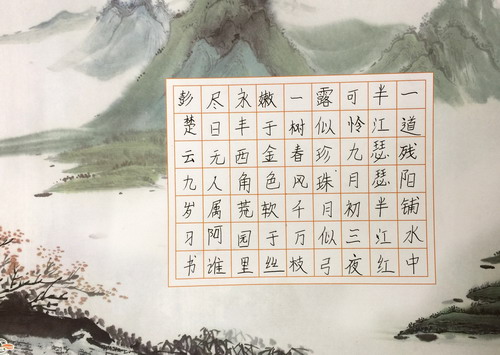 一道残阳铺水中
半江瑟瑟半江红
可怜九月初三夜
露似珍珠月似弓
一树春风千万枝
嫩于金色软于丝
永丰西角荒园里
尽日无人属阿谁
彭楚云九岁习书